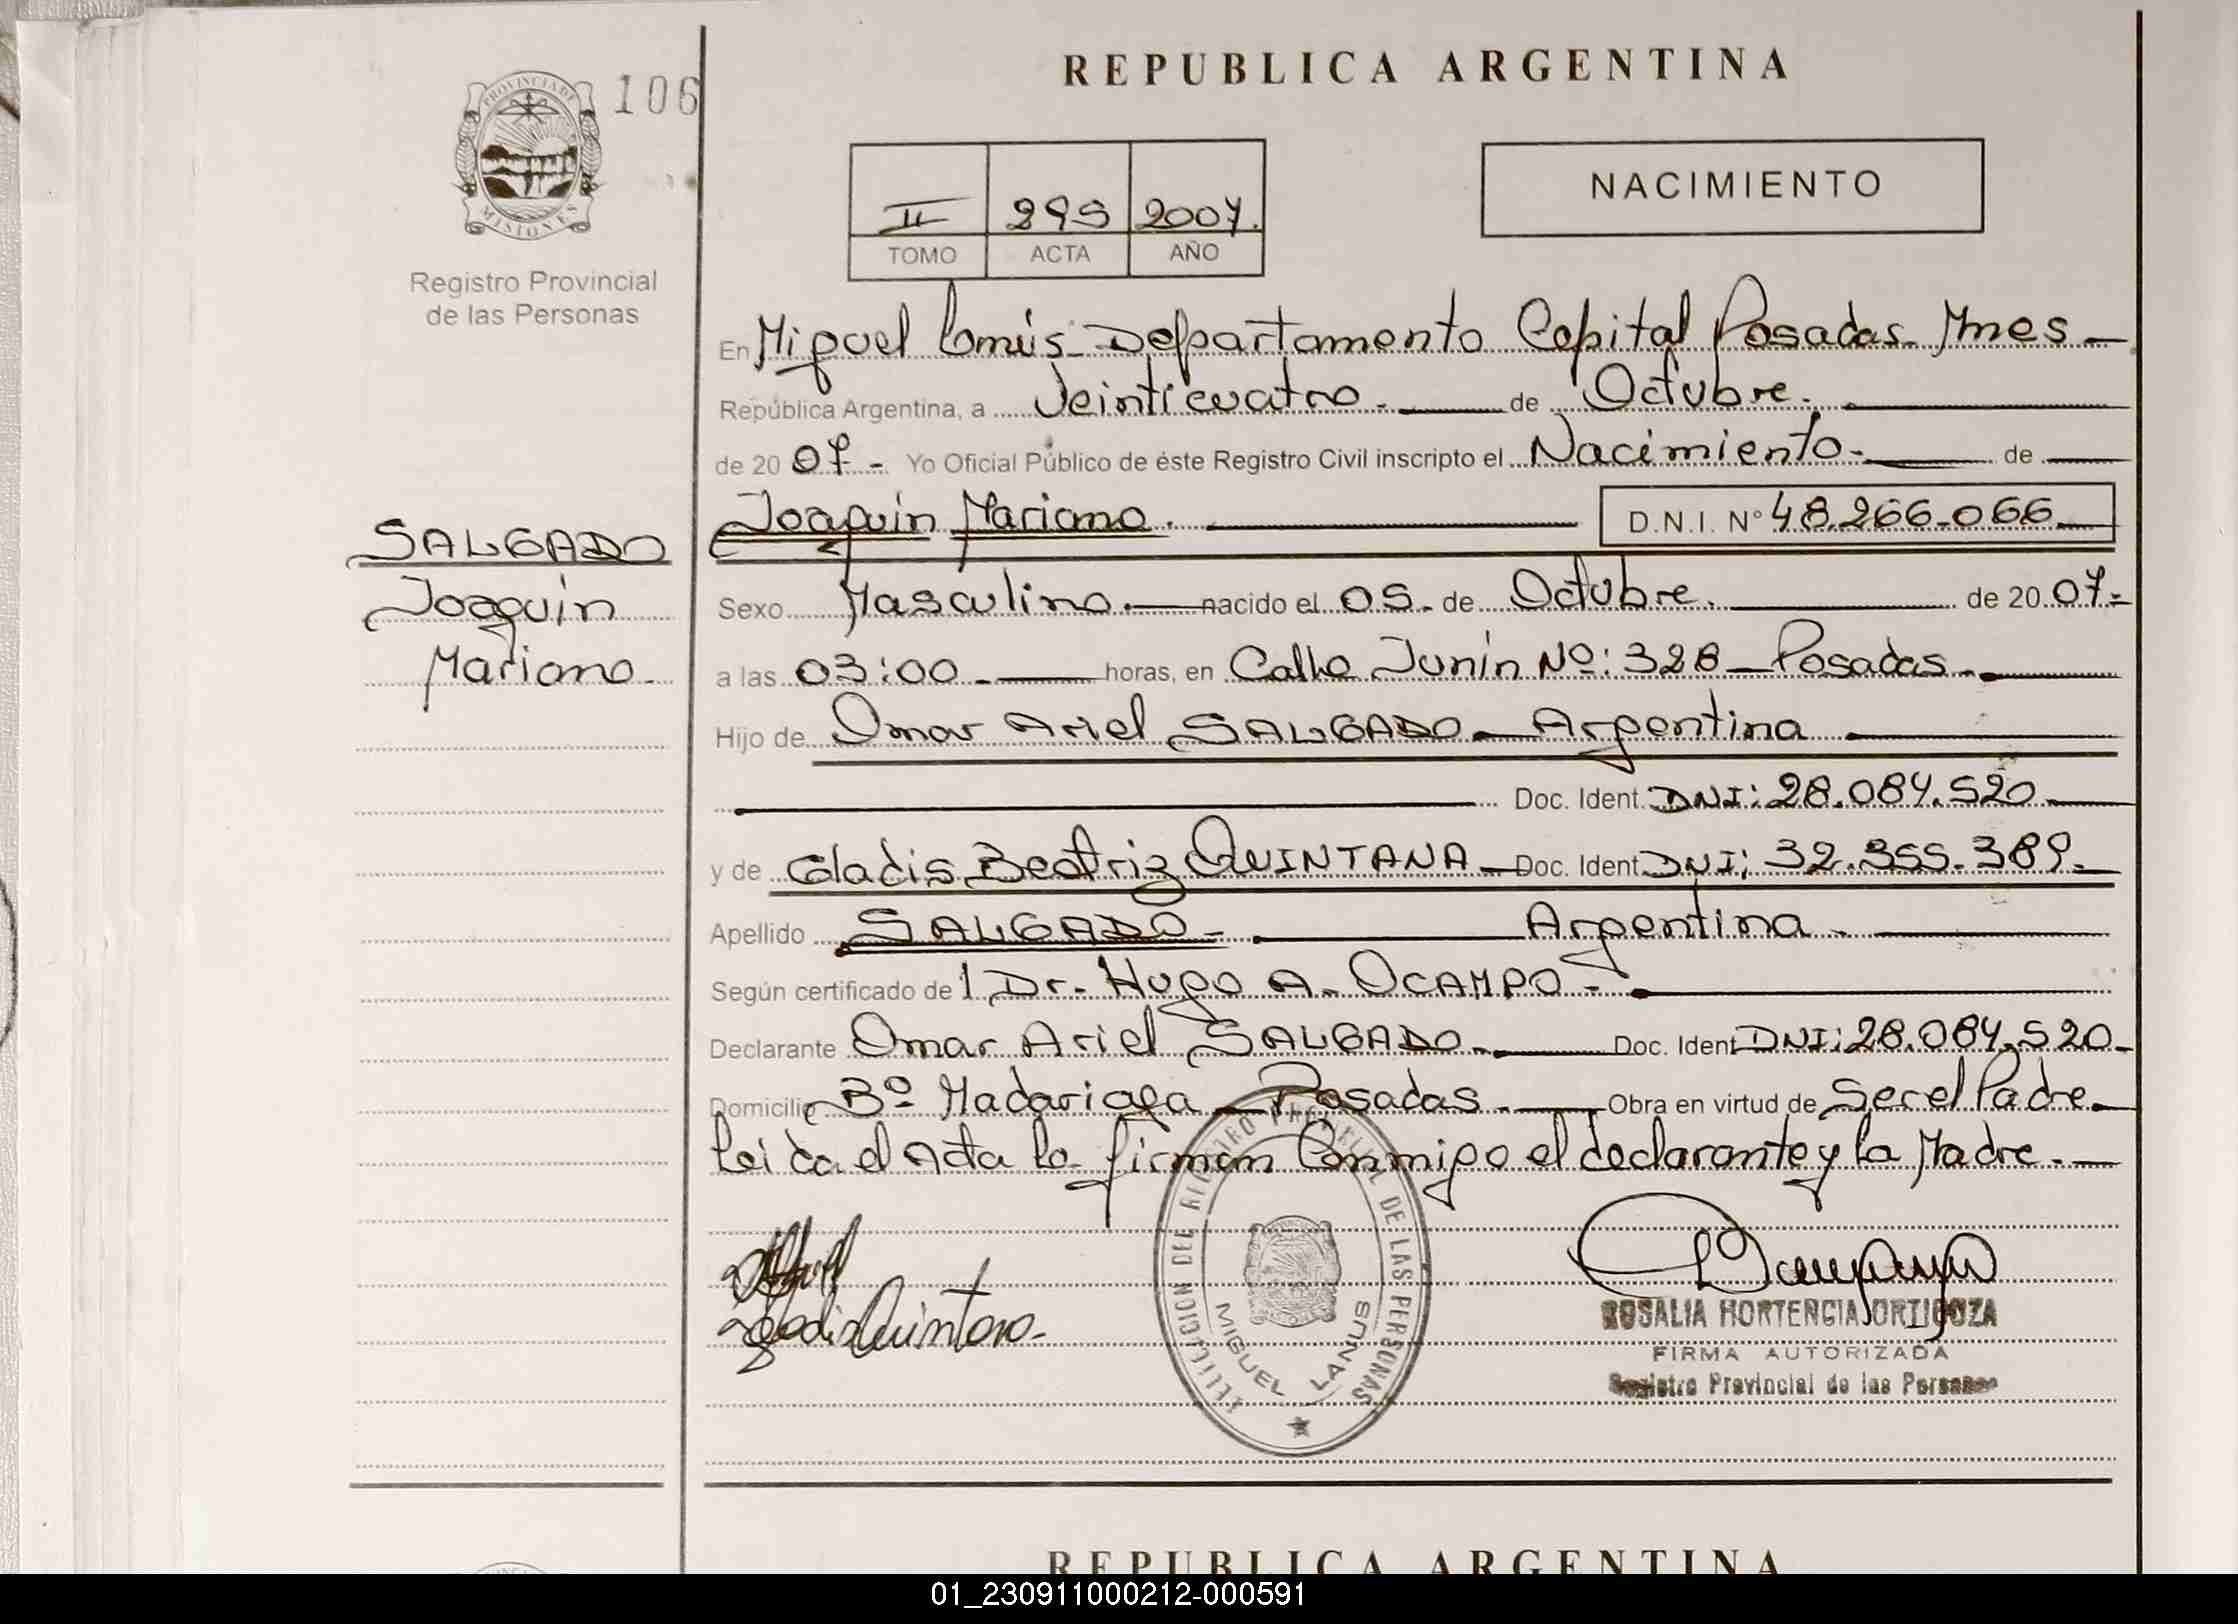 REPUBLICA ARGENTINA
PROVINCIA DE
MISIONES
106
Registro Provincial
de las Personas
II 295 2007.
TOMO ACTA AÑO
NACIMIENTO
En Miguel Lanús - Departamento Capital Posadas - Mnes -
República Argentina, a Veinticuatro. de Octubre.
de 20 07 - Yo Oficial Público de éste Registro Civil inscripto el Nacimiento. de
Joaquín Mariano. D.N.I. Nº 48.266.066
SALGADO
Joaquín
Mariano.
Sexo Masculino. nacido el 05. de Octubre. de 20 07.-
a las 03:00 horas, en Calle Junín Nº: 328 - Posadas.
Hijo de Omar Ariel SALGADO - Argentina
Doc. Ident. DNI: 28.084.520
y de Gladis Beatriz QUINTANA - Doc. Ident. DNI: 32.355.389.
Apellido SALGADO - Argentina.
Según certificado de l Dr. Hugo A. OCAMPO -
Declarante Omar Ariel SALGADO. Doc. Ident. DNI: 28.084.520.
Domicilio Bº Madariaga - Posadas. Obra en virtud de Ser el Padre.
Leída el Acta la firman Conmigo el declarante y la Madre.
DE LAS PERSONAS
MIGUEL LANUS
Gladis Quintana.
ROSALIA HORTENCIA ORTIGOZA
FIRMA AUTORIZADA
Registro Provincial de las Personas
REPUBLICA ARGENTINA
01_230911000212-000591